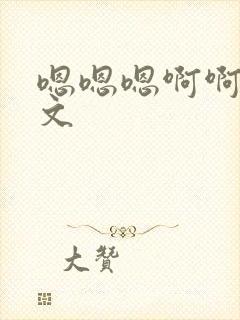 嗯嗯嗯啊啊
文
大赞